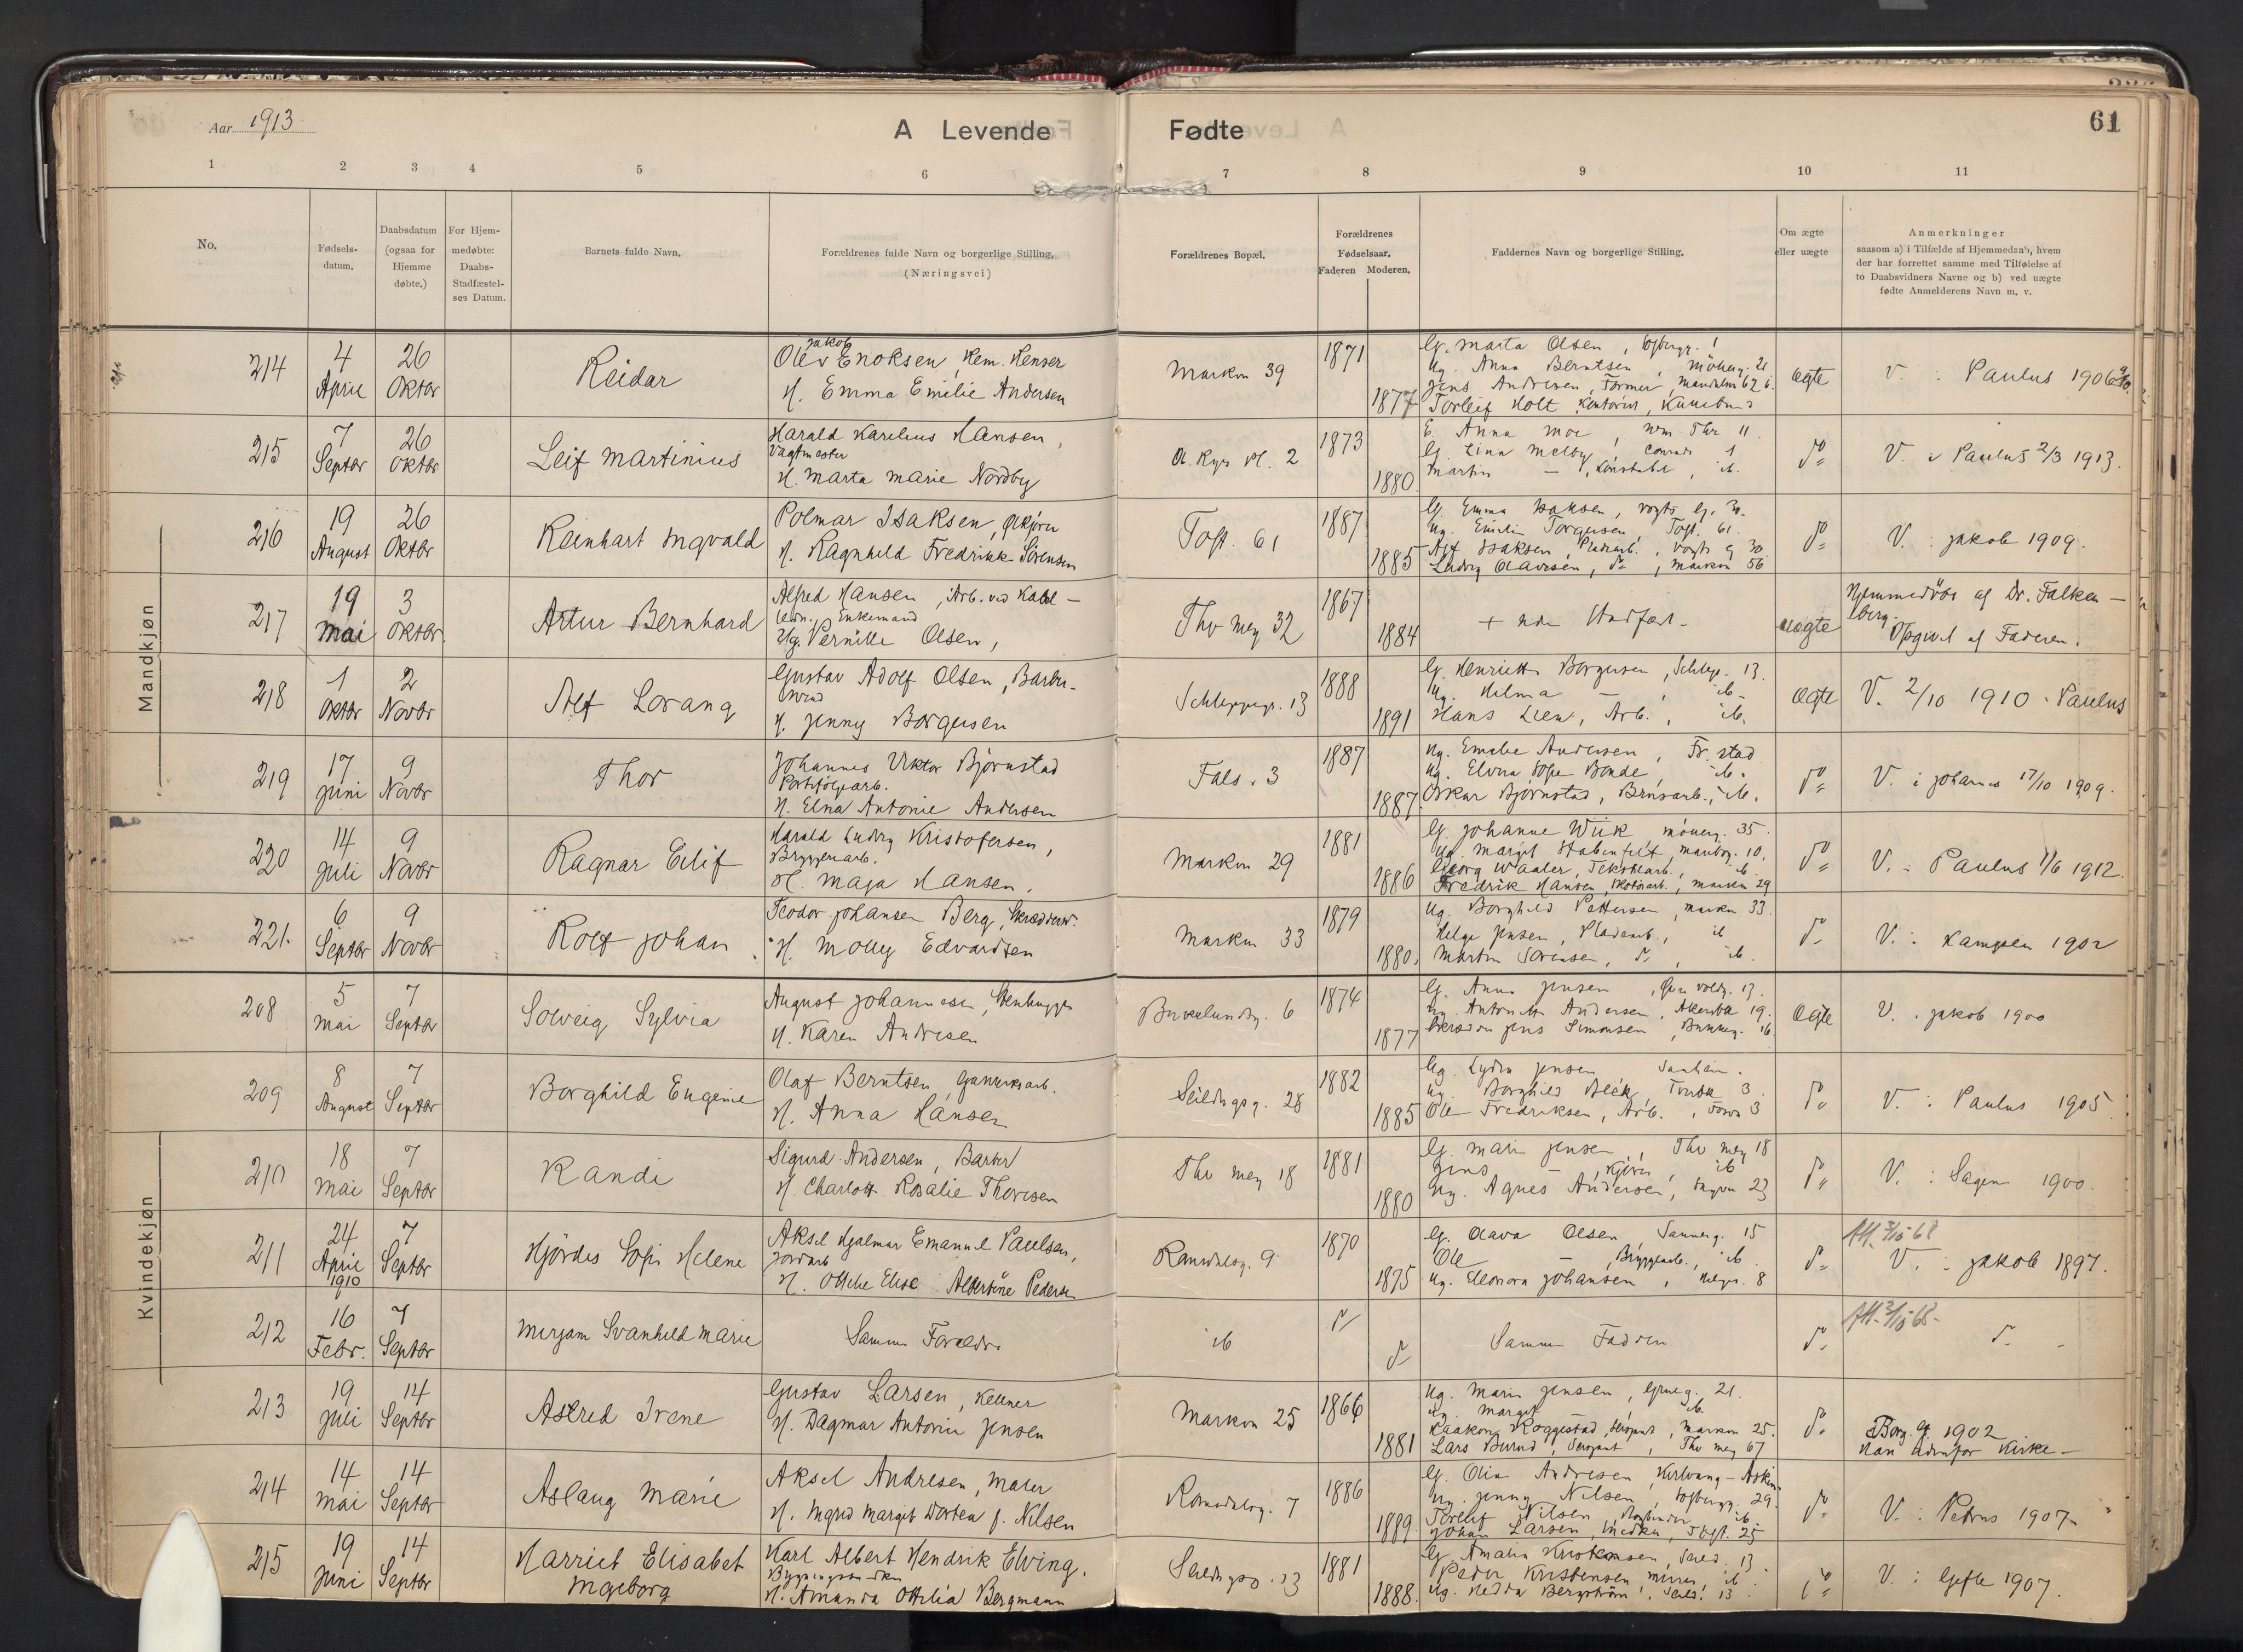 61
Aar 1913
A Levende Fødte
1 2 3 4 5 6 7 8 9 10 11
No.
Fødsels-
datum.
Daabsdatum
(ogsaa for
Hjemme
døbte.)
For Hjem-
medøbte:
Daabs-
Stadfæstel-
ses Datum.
Barnets fulde Navn.
Forældrenes fulde Navn og borgerlige Stilling.
(Næringsvei)
Forældrenes Bopæl.
Forældrenes
Fødselsaar.
Faderen Moderen.
Faddernes Navn og borgerlige Stilling.
Om ægte
eller uægte
Anmerkninger
saasom a) i Tilfælde af Hjemmedaab, hvem
der har forrettet samme med Tilføielse af
to Daabsvidners Navne og b) ved uægte
fødte Anmelderens Navn m. v.
Mandkjøn
214
4 April
26 Oktbr
Reidar
Jakob
Olev Enoksen, Kem. Renser
H. Emma Emilie Andersen
Markvn 39
1871
1877
G. Marta Olsen
Ug. Anna Berntsen
Jens Andresen, Former
Torleif Holt, Kontorist
ægte
V. i Paulus 1906
215
7 Septbr
26 Oktbr
Leif Martinius
Harald Karelius Hansen,
Vagtmester
H. Marta Marie Nordby
O. Ryes Pl. 2
1873
1880
E. Anna Moe
G. Lina Melby
Martin — , Konstabel, ib.
do
V. i Paulus 2/3 1913.
216
19 August
26 Oktbr
Reinhart Ingvald
Polmar Isaksen, Ølkjører
H. Ragnhild Fredrikke Sörensen
Toft. 61
1887
1885
G. Emma Isaksen, Vogts g. 30.
Ug. Emilie Torgersen, Toft. 61.
Alf Isaksen, Pladearb., Vogts g 30
Ludvig Olavesen, do, Markvn 56
do
V. i Jakob 1909.
217
19 Mai
3 Oktbr.
Artur Bernhard
Alfred Hansen, Arb. ved Kabel —
ledn. Enkemand
Ug. Pernille Olsen,
Thv mey 32
1867
1884
+ uden Stadfæst.
uægte
Hjemmedöbt af Dr. Falken —
berg.
Opgivet af Faderen.
218
1 Oktbr
2 Novbr
Alf Lorang
Gustav Adolf Olsen, Barber-
svend
H. Jenny Borgersen
Schleppegr. 13
1888
1891
G. Henriette Borgersen, Schlep. 13.
Ug. Helma — , ib.
Hans Lien, Arb., ib.
ægte
V. 2/10 1910 i Paulus
219
17 Juni
9 Novbr
Thor
Johannes Viktor Björnstad
Portefölgearb.
H. Elna Antonie Andersen
Fals. 3
1887
1887.
Ug. Emelie Andersen, Fr. stad
Ug. Elvira Sofie Bonde, ib.
Oskar Bjørnstad, ib.
do
V. i Johannes 17/10 1909.
220
14 Juli
9 Novbr
Ragnar Eilif
Harald Ludvig Kristofersen,
Bryggeriarb.
H. Maja Hansen.
Markvn 29
1881
1886
G. Johanne Wiik 35.
Ug. Margit 10.
Georg Waaler, Tekstilarb., ib.
Fredrik Hansen, Skotöiarb., Markvn 29
do
V. i Paulus 1/6 1912.
221.
6 Septbr
9 Novbr
Rolf Johan
Teodor Johansen Berg, Skræddersv.
H. Molly Edvardsen
Markvn 33
1879
1880.
Ug. Borghild Pettersen, Markvn 33.
Helge Jensen, Pladearb., ib
Martin Sörensen, do, ib.
do
V. i Kampen 1902
Kvindekjøn
208
5 Mai
7 Septbr
Solveig Sylvia
August Johannesen, Stenhugger
H. Karen Andresen
Birkelundsg. 6
1874
1877
G. Anna Jensen, 13.
Ug. Antonette Andersen, 19.
Skrædder Jens Simonsen, 16
ægte
V. i Jakob 1900
209
8 August
7 Septbr
Borghild Eugenie
Olaf Berntsen, Garverarb.
H. Anna Hansen
Seildugsg. 28
1882
1885
Ug. Lydia Jensen
Ug. Borghild 3
Ole Fredriksen, Arb. 3
do
V. i Paulus 1905
210
18 Mai
7 Septbr
Randi
Sigurd Andersen, Barber
H. Charlotte Rosalie Thoresen
Thv mey 18
1881
1880
G. Marie Jensen, Thv mey 18
Jens — , Kjörer, ib
Ug. Agnes Andersen, 23
do
V. i Sagen 1900.
211
24 April
1910
7 Septbr
Hjördis Sofie Helene
Aksel Hjalmar Emanuel Paulsen,
Jordarb
H. Otthilie Elise Albertine Pedersen
Ramdalsg. 9
1870
1875
G. Olava Olsen, Sannerg. 15
Ole — , Bryggearb., ib
Ug. Eleonora Johansen, Helges. 8
do
Att. 3/10-68
V. i Jakob 1897.
212
16 Febr.
7 Septbr
Mirjam Svanhild Marie
Samme Forældre
ib
do
do
Samme Faddere
do
Att. 3/10-68-
do
213
19 Juli
14 Septbr
Astrid Irene
Gustav Larsen, Kelner
H. Dagmar Antonie Jensen
Markvn 25
1866
1881
Ug. Marie Jensen, Grüng. 21.
Ug. Margit — , ib.
Haakon Roggestad, Sersjant, Markvn 25.
Lars Burud, Sersjant, Thv mey 67
do
Borg. g. 1902
Han udenfor Kirke —
214
14 Mai
14 Septbr
Aslaug Marie
Aksel Andresen, Maler
H. Ingrid Margit Dortea f. Nilsen
Romsdalsg. 7
1886
1889.
G. Oline Andresen
Ug. Jenny Nilsen 29.
Toreleif Nilsen ib.
Johan Larsen, Toft. 25
do
V. i Petrus 1907
215
19 Juni
14 Septbr
Harriet Elisabet
Ingeborg
Karl Albert Hendrik Elving.
H. Amanda Ottilia Bergmann
Seildugsg. 13
1881
1888.
G. Amalia Kristensen, Seild. 13.
Peder Kristensen, Murer, ib.
Ug. Hedda Bergström, Seild. 13
do
V. i Gefle 1907.